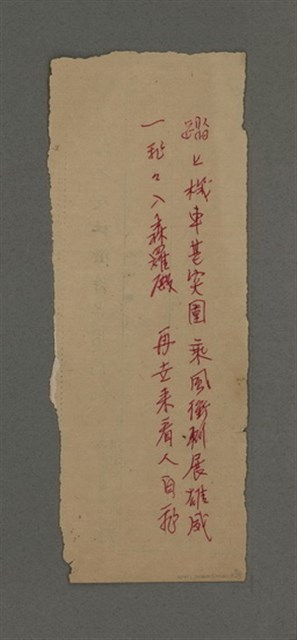 踏上機車甚突圍 乘風衝刺展雄威
一 々入森羅殿 再世來看人自